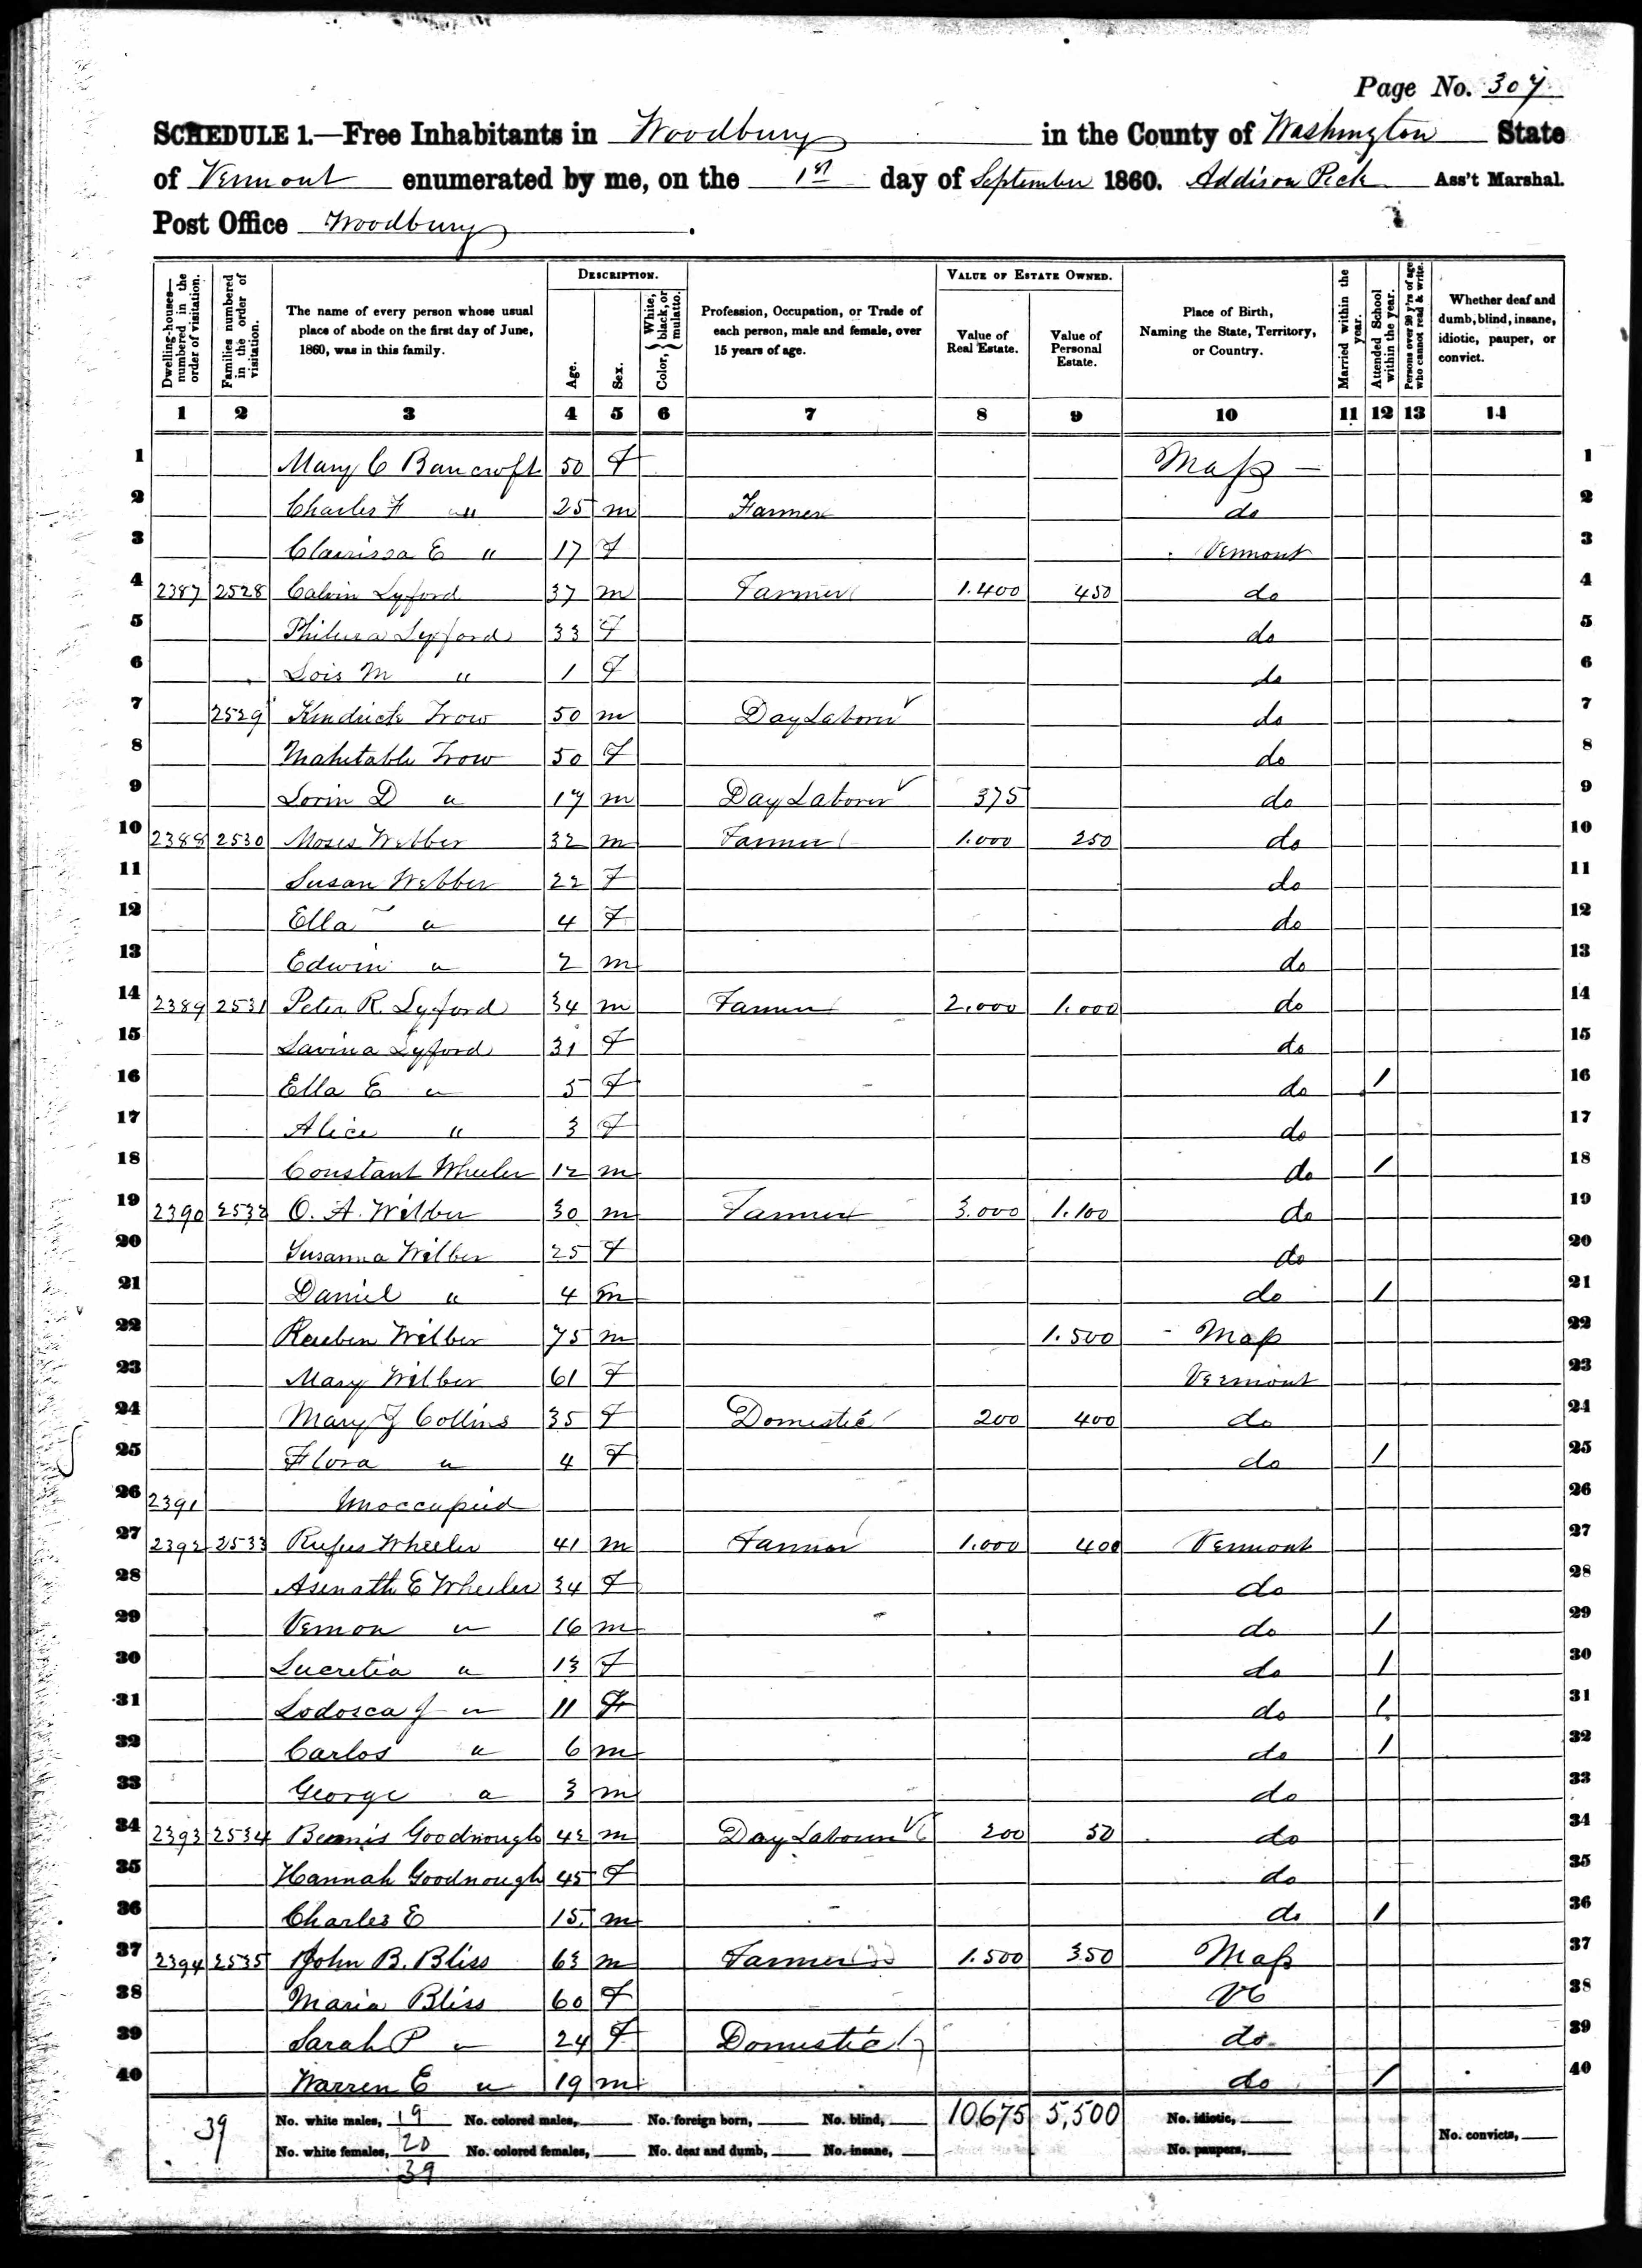 Page No. 307
SCHEDULE 1.—Free Inhabitants in Woodbury in the County of Washington State
of Vermont enumerated by me, on the 1st day of September 1860. Addison Peck Ass't Marshal.
Post Office Woodbury.
DESCRIPTION. VALUE OF ESTATE OWNED.
Dwelling-houses—numbered in the order of visitation. Families numbered in the order of visitation. The name of every person whose usual place of abode on the first day of June, 1860, was in this family. Age. Sex. Color, { White, black, or mulatto. Profession, Occupation, or Trade of each person, male and female, over 15 years of age. Value of Real Estate. Value of Personal Estate. Place of Birth, Naming the State, Territory, or Country. Married within the year. Attended School within the year. Persons over 20 y'rs of age who cannot read & write. Whether deaf and dumb, blind, insane, idiotic, pauper, or convict.
1 2 3 4 5 6 7 8 9 10 11 12 13 14
1 Mary C Bancroft 50 F Mass 1
2 Charles F " 25 m Farmer do 2
3 Clarrissa E " 17 F Vermont 3
4 2387 2528 Calvin Lyford 37 m Farmer 1.400 450 do 4
5 Philura Lyford 33 F do 5
6 Lois M " 1 F do 6
7 2529 Kindrick Trow 50 m Day Laborer do 7
8 Mahitable Trow 50 F do 8
9 Lorin D " 17 m Day Laborer 375 do 9
10 2388 2530 Moses Webber 32 m Farmer 1.000 250 do 10
11 Susan Webber 22 F do 11
12 Ella " 4 F do 12
13 Edwin " 2 m do 13
14 2389 2531 Peter R. Lyford 34 m Farmer 2.000 1.000 do 14
15 Lavina Lyford 31 F do 15
16 Ella E " 5 F do / 16
17 Alice " 3 F do 17
18 Constant Wheeler 12 m do / 18
19 2390 2532 O. A. Wilber 30 m Farmer 3.000 1.100 do 19
20 Susanna Wilber 25 F do 20
21 Daniel " 4 m do / 21
22 Reuben Wilber 75 m 1.500 Mass 22
23 Mary Wilber 61 F Vermont 23
24 Mary J Collins 35 F Domestic 200 400 do 24
25 Flora " 4 F do / 25
26 2391 Unoccupied 26
27 2392 2533 Rufus Wheeler 41 m Farmer 1.000 400 Vermont 27
28 Asenath E Wheeler 34 F do 28
29 Vernon " 16 m do / 29
30 Lucretia " 13 F do / 30
31 Lodosca J " 11 F do / 31
32 Carlos " 6 m do / 32
33 George " 3 m do 33
34 2393 2534 Bemis Goodnough 42 m Day Laborer 200 50 do 34
35 Hannah Goodnough 45 F do 35
36 Charles E 15 m do / 36
37 2394 2535 John B. Bliss 63 m Farmer 1.500 350 Mass 37
38 Maria Bliss 60 F Vt 38
39 Sarah P " 24 F Domestic do 39
40 Warren E " 19 m do / 40
39 No. white males, 19 No. colored males, No. foreign born, No. blind, 10,675 5,500 No. idiotic,
No. white females, 20 No. colored females, No. deaf and dumb, No. insane, No. paupers, No. convicts,
39